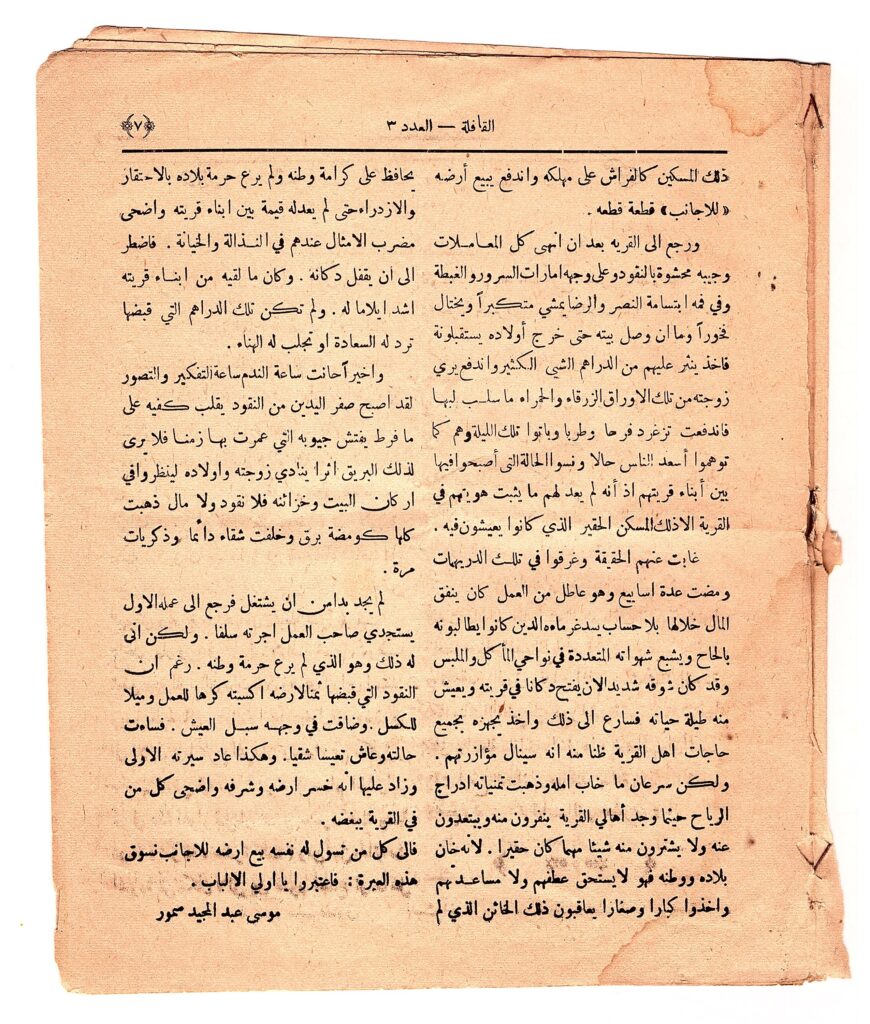 القافلة — العدد ٣
﴿٧﴾
ذلك المسكين كالفراش على مهلكه واندفع يبيع أرضه
«للاجانب» قطعة قطعه .
ورجع الى القريه بعد ان انهى كل المعاملات
وجيبه محشوة بالنقود وعلى وجهه امارات السرور والغبطة
وفي فمه ابتسامة النصر والرضا يمشي متكبراً ويختال
فخوراً وما ان وصل بيته حتى خرج أولاده يستقبلونة
فاخذ ينثر عليهم من الدراهم الشيء الكثير واندفع يري
زوجته من تلك الاوراق الزرقاء والحمراء ما سلب لبها
فاندفعت تزغرد فرحا وطربا وباتوا تلك الليلة وهم كما
توهموا أسعد الناس حالا ونسوا الحالة التى أصبحوا فيها
بين أبناء قريتهم اذ أنه لم يعد لهم ما يثبت هويتهم في
القرية الا ذلك المسكن الحقير الذي كانوا يعيشون فيه .
غابت عنهم الحقيقة وغرقوا في تلك الدريهمات
ومضت عدة اسابيع وهو عاطل من العمل كان ينفق
المال خلالها بلا حساب يسدغرماءه الدين كانوا يطالبونه
بالحاح ويشبع شهواته المتعددة في نواحي المأكل والملبس
وقد كان شوقه شديدا لان يفتح دكانا في قريته ويعيش
منه طيلة حياته فسارع الى ذلك واخذ يجهزه بجميع
حاجات اهل القرية ظنا منه انه سينال مؤازرتهم .
ولكن سرعان ما خاب امله وذهبت تمنياته ادراج
الرياح حيثما وجد أهالي القرية ينفرون منه ويبتعدون
عنه ولا يشترون منه شيئا مهما كان حقيرا . لأنه خان
بلاده ووطنه فهو لا يستحق عطفهم ولا مساعدتهم
واخذوا كبارا وصغارا يعاقبون ذلك الخائن الذي لم
يحافظ على كرامة وطنه ولم يرع حرمة بلاده بالاحتقار
والازدراء حتى لم يعد له قيمة بين ابناء قريته واضحى
مضرب الامثال عندهم في النذالة والخيانة . فاضطر
الى ان يقفل دكانه . وكان ما لقيه من ابناء قريته
اشد ايلاما له . ولم تكن تلك الدراهم التي قبضها
ترد له السعادة او تجلب له الهناء .
واخيراً حانت ساعة الندم ساعة التفكير والتصور
لقد اصبح صفر اليدين من النقود يقلب كفيه على
ما فرط يفتش جيوبه التي عمرت بها زمنا فلا يرى
لذلك البريق اثرا ينادي زوجته واولاده لينظروا في
اركان البيت وخزائنه فلا نقود ولا مال ذهبت
كلها كومضة برق وخلفت شقاء دائما وذكريات
مرة .
لم يجد بدا من ان يشتغل فرجع الى عمله الاول
يستجدي صاحب العمل اجرته سلفا . ولكن انى
له ذلك وهو الذي لم يرع حرمة وطنه . رغم ان
النقود التي قبضها ثمنا لارضه اكسبته كرها للعمل وميلا
للكسل . وضاقت في وجهه سبل العيش . فساءت
حالته وعاش تعيسا شقيا . وهكذا عاد سيرته الاولى
وزاد عليها انه خسر ارضه وشرفه واضحى كل من
في القرية يبغضه .
فالى كل من تسول له نفسه بيع ارضه للاجانب نسوق
هذه العبرة : فاعتبروا يا اولي الالباب .
موسى عبد المجيد صمور